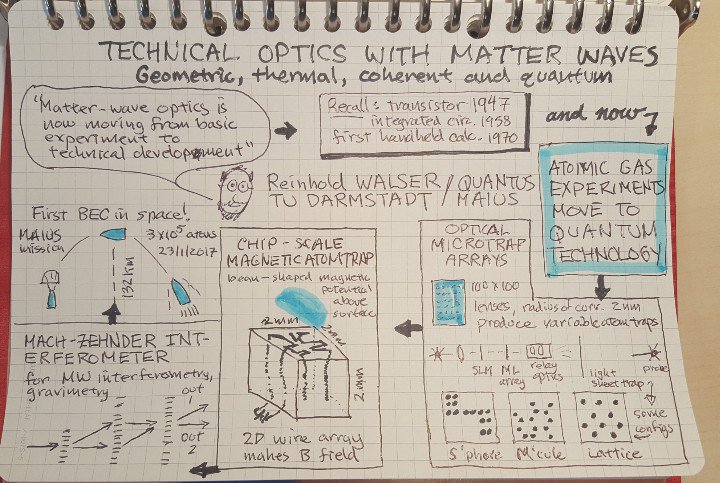 TECHNICAL OPTICS WITH MATTER WAVES
Geometric, thermal, coherent and quantum
"Matter-wave optics is
now moving from basic
experiment to
technical development"
Recall: transistor 1947
integrated circ. 1958
first handheld calc. 1970
and now
ATOMIC GAS
EXPERIMENTS
MOVE TO
QUANTUM
TECHNOLOGY
Reinhold WALSER / QUANTUS
TU DARMSTADT / MAIUS
First BEC in space!
MAIUS
mission
132 km
3×10⁵ atoms
23/1/2017
MACH-ZEHNDER INT-
ERFEROMETER
for MW interferometry,
gravimetry
out
1
out
2
CHIP-SCALE
MAGNETIC ATOM TRAP
bean-shaped magnetic
potential
above
surface
2mm
2mm
2mm
2D wire array
makes B field
OPTICAL
MICROTRAP
ARRAYS
100×100
lenses, radius of curv. 2mm
produce variable atom traps
SLM
ML
array
relay
optics
light
sheet trap
probe
some
configs
S'phore
M'cule
Lattice